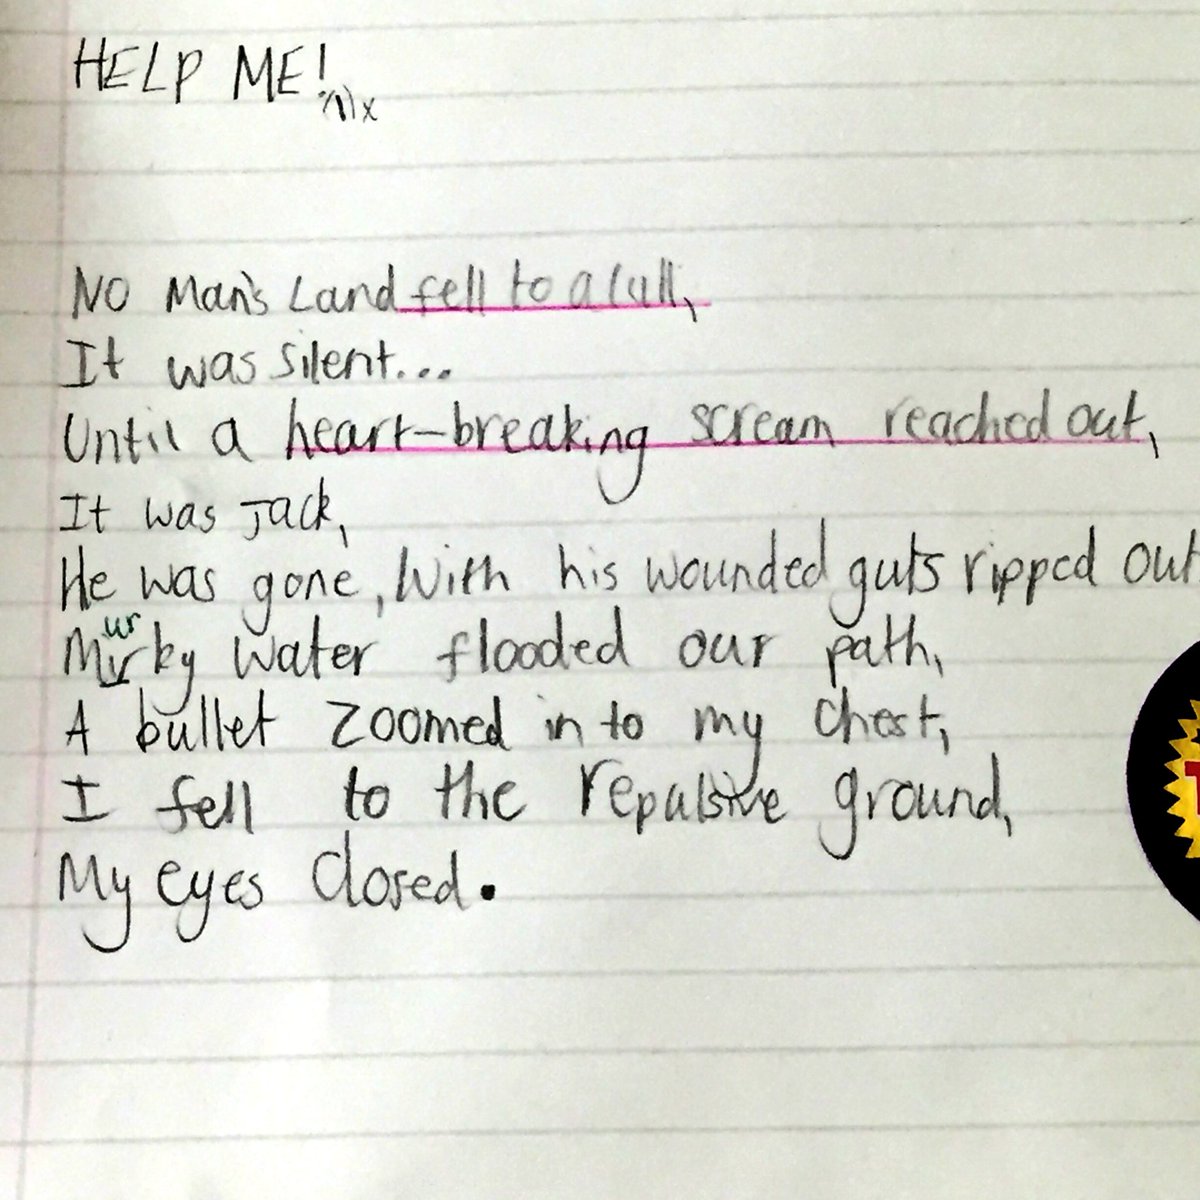 HELP ME!
No Man's Land fell to a lull,
It was silent...
Until a heart-breaking scream reached out,
It was Jack,
He was gone, With his wounded guts ripped out
ur
Mirky water flooded our path,
A bullet zoomed in to my chest,
I fell to the repulsive ground,
My eyes closed.